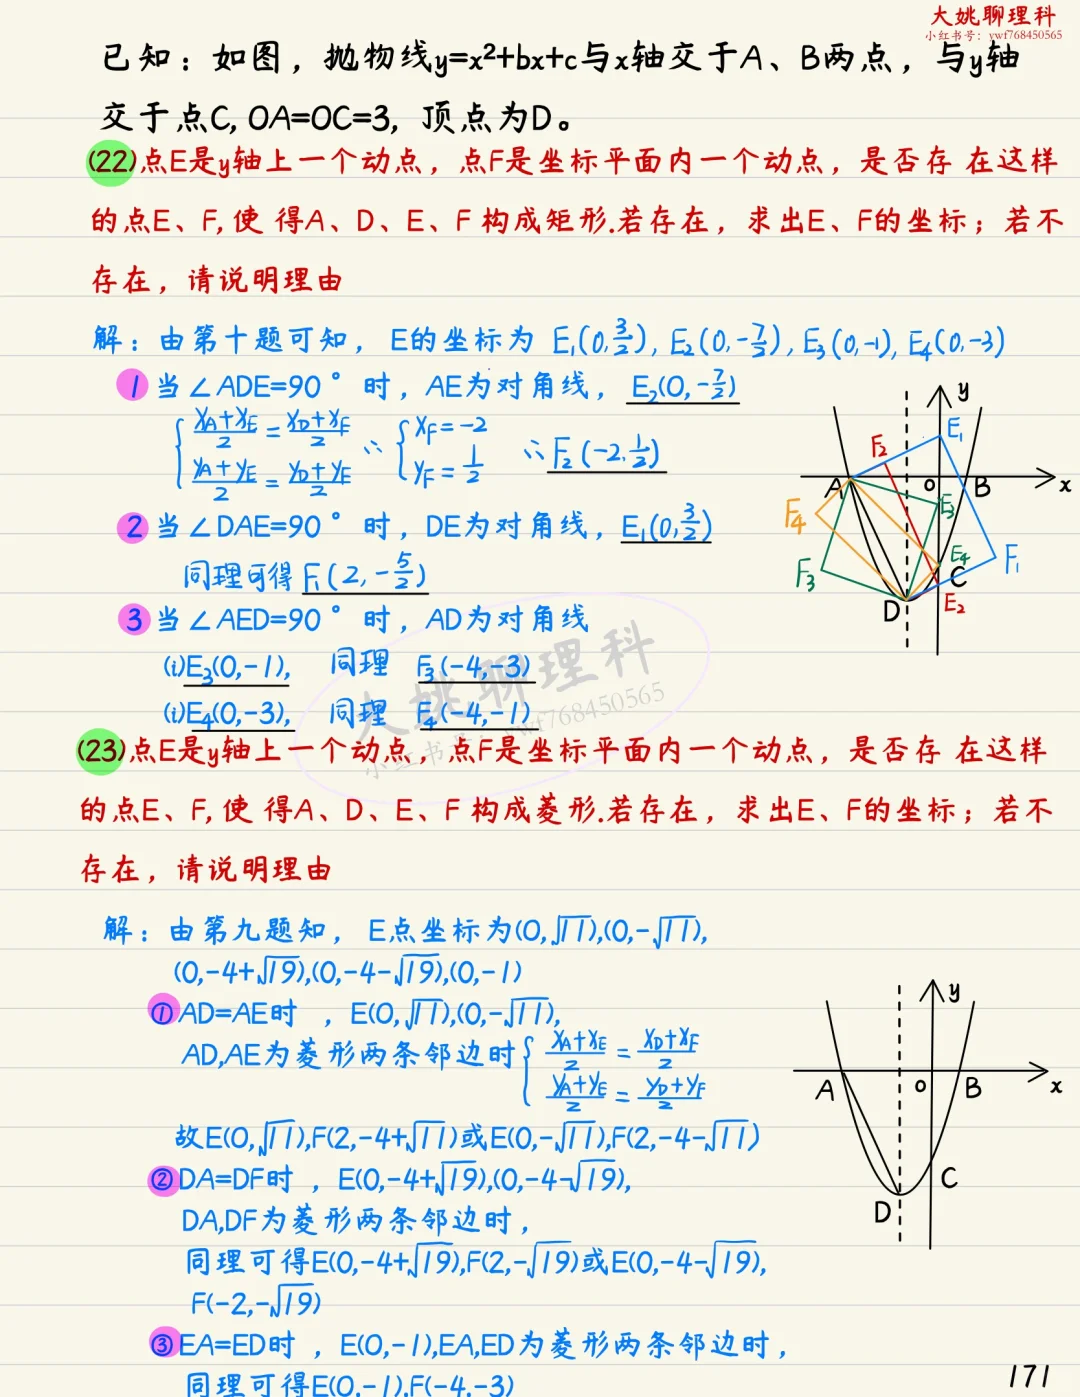 大姚聊理科
小红书号：ywf768450565
已知：如图，抛物线y=x²+bx+c与x轴交于A、B两点，与y轴
交于点C, OA=OC=3, 顶点为D。
(22)点E是y轴上一个动点，点F是坐标平面内一个动点，是否存 在这样
的点E、F,使 得A、D、E、F 构成矩形.若存在，求出E、F的坐标；若不
存在，请说明理由
解：由第十题可知，E的坐标为 E₁(0,3/2), E₂(0,-7/2), E₃(0,-1), E₄(0,-3)
1 当∠ADE=90°时，AE为对角线，E₂(0,-7/2)
{ (x_A+x_E)/2 = (x_D+x_F)/2 ∴ { x_F=-2 ∴ F₂(-2,1/2)
(y_A+y_E)/2 = (y_D+y_F)/2 y_F=1/2
2 当∠DAE=90°时，DE为对角线，E₁(0,3/2)
同理可得 F₁(2,-5/2)
3 当∠AED=90°时，AD为对角线
(i)E₃(0,-1), 同理 F₃(-4,-3)
(i)E₄(0,-3), 同理 F₄(-4,-1)
y
E₁
F₂
A
O
B
x
F₄
E₃
F₃
E₄
F₁
C
D
E₂
大姚聊理科
小红书号：ywf768450565
(23)点E是y轴上一个动点，点F是坐标平面内一个动点，是否存 在这样
的点E、F,使 得A、D、E、F 构成菱形.若存在，求出E、F的坐标；若不
存在，请说明理由
解：由第九题知，E点坐标为(0,√11),(0,-√11),
(0,-4+√19),(0,-4-√19),(0,-1)
① AD=AE时 ，E(0,√11),(0,-√11),
AD,AE为菱形两条邻边时{ (x_A+x_E)/2 = (x_D+x_F)/2
(y_A+y_E)/2 = (y_D+y_F)/2
故E(0,√11),F(2,-4+√11)或E(0,-√11),F(2,-4-√11)
② DA=DF时 ，E(0,-4+√19),(0,-4-√19),
DA,DF为菱形两条邻边时，
同理可得E(0,-4+√19),F(2,-√19)或E(0,-4-√19),
F(-2,-√19)
③ EA=ED时 ，E(0,-1),EA,ED为菱形两条邻边时，
同理可得E(0,-1),F(-4,-3)
y
A
O
B
x
C
D
171